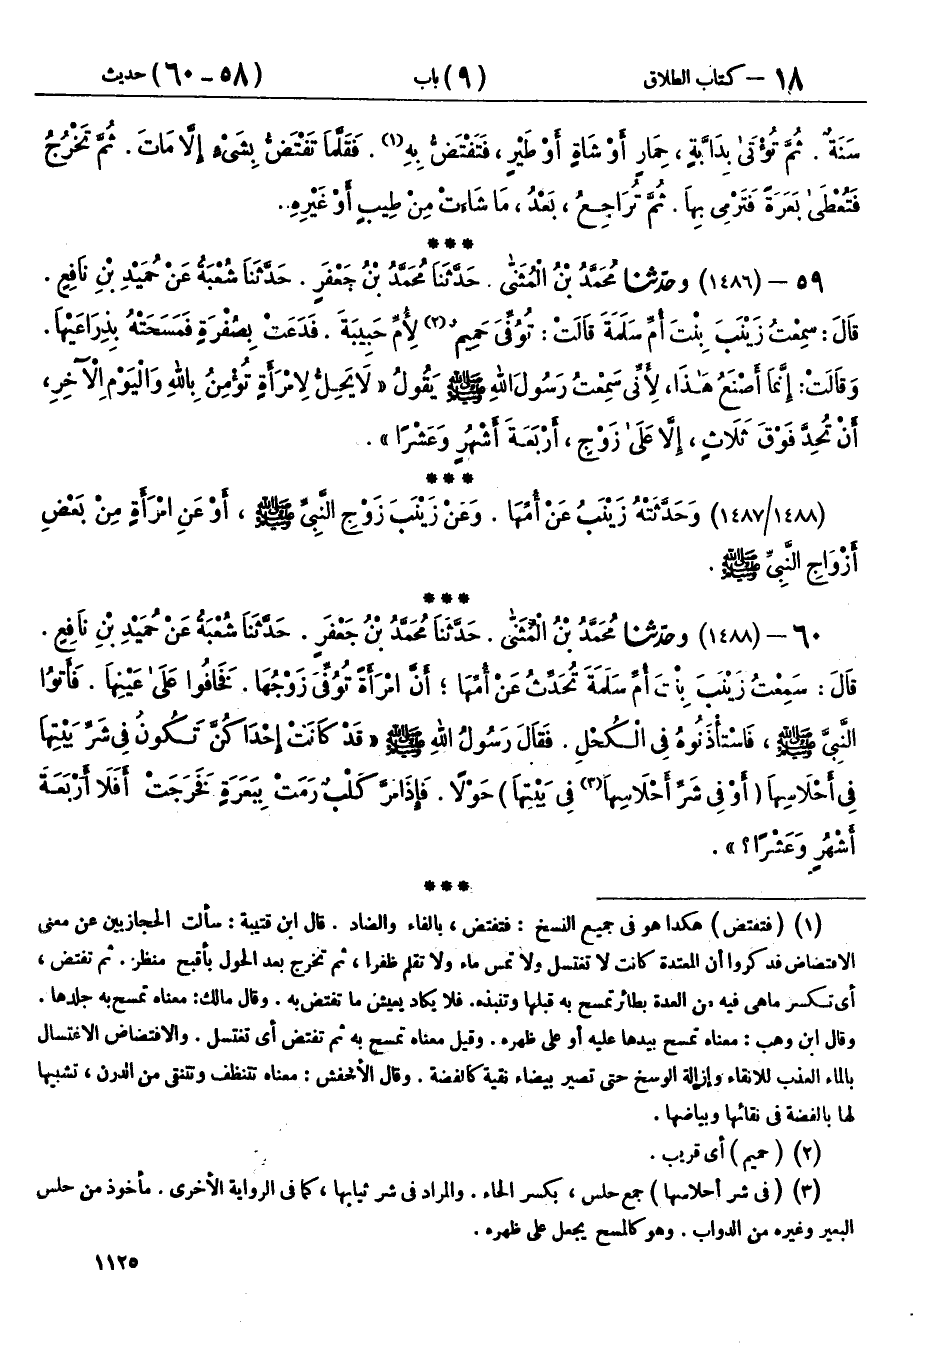 ١٨ – كتاب الطلاق (٩) باب (٥٨ – ٦٠) حديث
سَنَةٌ . ثُمَّ تُؤْتَىٰ بِدَابَّةٍ ، حِمَارٍ أَوْ شَاةٍ أَوْ طَيْرٍ ، فَتَفْتَضُّ بِهِ(١) . فَقَلَّمَا تَفْتَضُّ بِشَيْءٍ إِلَّا مَاتَ . ثُمَّ تَخْرُجُ
فَتُعْطَىٰ بَعَرَةً فَتَرْمِى بِهَا . ثُمَّ تُرَاجِعُ ، بَعْدُ ، مَا شَاءَتْ مِنْ طِيبٍ أَوْ غَيْرِهِ..
***
٥٩ – (١٤٨٦) وحَدَّثَنَا مُحَمَّدُ بْنُ الْمُثَنَّىٰ . حَدَّثَنَا مُحَمَّدُ بْنُ جَعْفَرٍ . حَدَّثَنَا شُعْبَةُ عَنْ حُمَيْدِ بْنِ نَافِعٍ .
قَالَ : سَمِعْتُ زَيْنَبَ بِنْتَ أُمِّ سَلَمَةَ قَالَتْ : تُوُفِّىَ حَمِيمٌ(٢) لِأُمِّ حَبِيبَةَ . فَدَعَتْ بِصُفْرَةٍ فَمَسَحَتْهُ بِذِرَاعَيْهَا .
وَقَالَتْ : إِنَّمَا أَصْنَعُ هَـٰذَا ، لِأَنِّى سَمِعْتُ رَسُولَ اللهِ ﷺ يَقُولُ « لَا يَحِلُّ لِامْرَأَةٍ تُؤْمِنُ بِاللهِ وَالْيَوْمِ الْآخِرِ ،
أَنْ تُحِدَّ فَوْقَ ثَلَاثٍ ، إِلَّا عَلَىٰ زَوْجٍ ، أَرْبَعَةَ أَشْهُرٍ وَعَشْرًا » .
***
(١٤٨٧/١٤٨٨) وَحَدَّثَتْهُ زَيْنَبُ عَنْ أُمِّهَا . وَعَنْ زَيْنَبَ زَوْجِ النَّبِىِّ ﷺ ، أَوْ عَنِ امْرَأَةٍ مِنْ بَعْضِ
أَزْوَاجِ النَّبِىِّ ﷺ .
***
٦٠ – (١٤٨٨) وحَدَّثَنَا مُحَمَّدُ بْنُ الْمُثَنَّىٰ . حَدَّثَنَا مُحَمَّدُ بْنُ جَعْفَرٍ . حَدَّثَنَا شُعْبَةُ عَنْ حُمَيْدِ بْنِ نَافِعٍ .
قَالَ : سَمِعْتُ زَيْنَبَ بِنْتَ أُمِّ سَلَمَةَ تُحَدِّثُ عَنْ أُمِّهَا ؛ أَنَّ امْرَأَةً تُوُفِّىَ زَوْجُهَا . فَخَافُوا عَلَىٰ عَيْنِهَا . فَأَتَوُا
النَّبِىَّ ﷺ ، فَاسْتَأْذَنُوهُ فِى الْكُحْلِ . فَقَالَ رَسُولُ اللهِ ﷺ « قَدْ كَانَتْ إِحْدَاكُنَّ تَكُونُ فِى شَرِّ بَيْتِهَا
فِى أَحْلَاسِهَا ( أَوْ فِى شَرِّ أَحْلَاسِهَا(٣) فِى بَيْتِهَا ) حَوْلًا . فَإِذَا مَرَّ كَلْبٌ رَمَتْ بِبَعَرَةٍ فَخَرَجَتْ أَفَلَا أَرْبَعَةَ
أَشْهُرٍ وَعَشْرًا ؟ » .
***
(١) ( فتفتض ) هكذا هو فى جميع النسخ : فتفتض ، بالفاء والضاد . قال ابن قتيبة : سألت الحجازيين عن معنى
الافتضاض فذكروا أن المعتدة كانت لا تغتسل ولا تمس ماء ولا تقلم ظفرا ، ثم تخرج بعد الحول بأقبح منظر . ثم تفتض ،
أى تكسر ماهى فيه من العدة بطائر تمسح به قبلها وتنبذه. فلا يكاد يعيش ما تفتض به . وقال مالك : معناه تمسح به جلدها .
وقال ابن وهب : معناه تمسح بيدها عليه أو على ظهره . وقيل معناه تمسح به ثم تفتض أى تغتسل . والافتضاض الاغتسال
بالماء العذب للانقاء وإزالة الوسخ حتى تصير بيضاء نقية كالفضة . وقال الأخفش : معناه تتنظف وتتنقى من الدرن ، تشبيها
لها بالفضة فى نقائها وبياضها .
(٢) ( حميم ) أى قريب .
(٣) ( فى شر أحلاسها ) جمع حلس ، بكسر الحاء . والمراد فى شر ثيابها ، كما فى الرواية الأخرى . مأخوذ من حلس
البعير وغيره من الدواب . وهو كالمسح يجعل على ظهره .
١١٢٥